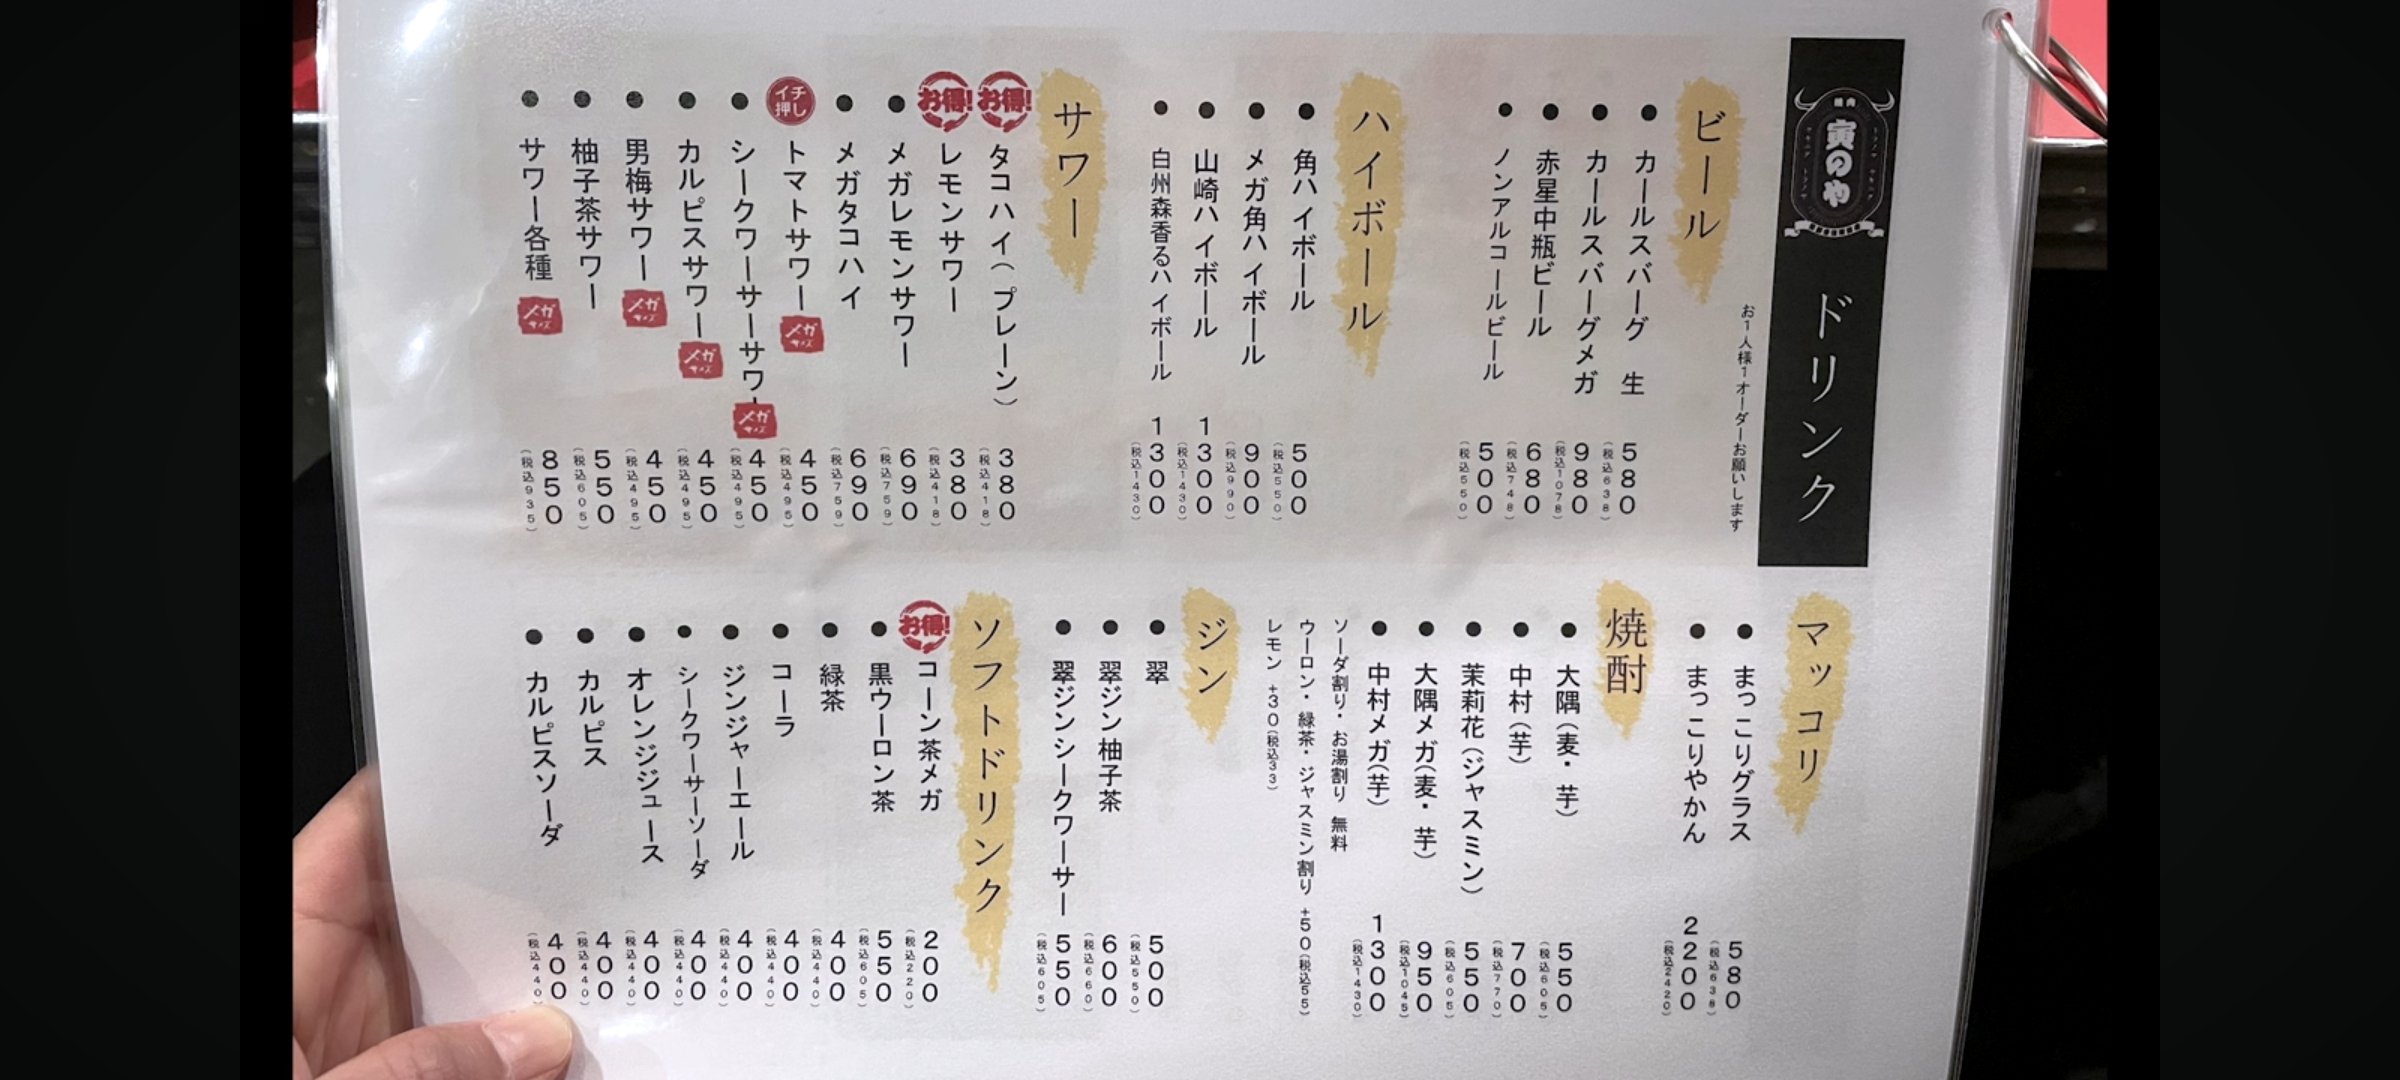 焼肉
寅のや
ドリンク
お1人様1オーダーお願いします
ビール
● カールスバーグ 生 580 (税込638)
● カールスバーグメガ 980 (税込1078)
● 赤星中瓶ビール 680 (税込748)
● ノンアルコールビール 500 (税込550)
ハイボール
● 角ハイボール 500 (税込550)
● メガ角ハイボール 900 (税込990)
● 山崎ハイボール 1300 (税込1430)
● 白州森香るハイボール 1300 (税込1430)
サワー
お得! タコハイ(プレーン) 380 (税込418)
お得! レモンサワー 380 (税込418)
● メガレモンサワー 690 (税込759)
● メガタコハイ 690 (税込759)
イチ押し トマトサワー メガサイズ 450 (税込495)
● シークワーサーサワー メガサイズ 450 (税込495)
● カルピスサワー メガサイズ 450 (税込495)
● 男梅サワー メガサイズ 450 (税込495)
● 柚子茶サワー 550 (税込605)
● サワー各種 メガサイズ 850 (税込935)
マッコリ
● まっこりグラス 580 (税込638)
● まっこりやかん 2200 (税込2420)
焼酎
● 大隅(麦・芋) 550 (税込605)
● 中村(芋) 700 (税込770)
● 茉莉花(ジャスミン) 550 (税込605)
● 大隅メガ(麦・芋) 950 (税込1045)
● 中村メガ(芋) 1300 (税込1430)
ソーダ割り・お湯割り 無料
ウーロン・緑茶・ジャスミン割り +50(税込55)
レモン +30(税込33)
ジン
● 翠 500 (税込550)
● 翠ジン柚子茶 600 (税込660)
● 翠ジンシークワーサー 550 (税込605)
ソフトドリンク
お得! コーン茶メガ 200 (税込220)
● 黒ウーロン茶 550 (税込605)
● 緑茶 400 (税込440)
● コーラ 400 (税込440)
● ジンジャーエール 400 (税込440)
● シークワーサーソーダ 400 (税込440)
● オレンジジュース 400 (税込440)
● カルピス 400 (税込440)
● カルピスソーダ 400 (税込440)